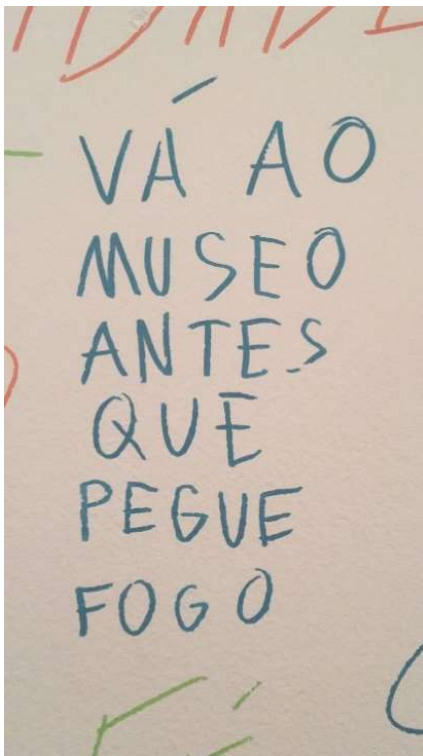 VÁ AO
MUSEO
ANTES
QUE
PEGUE
FOGO